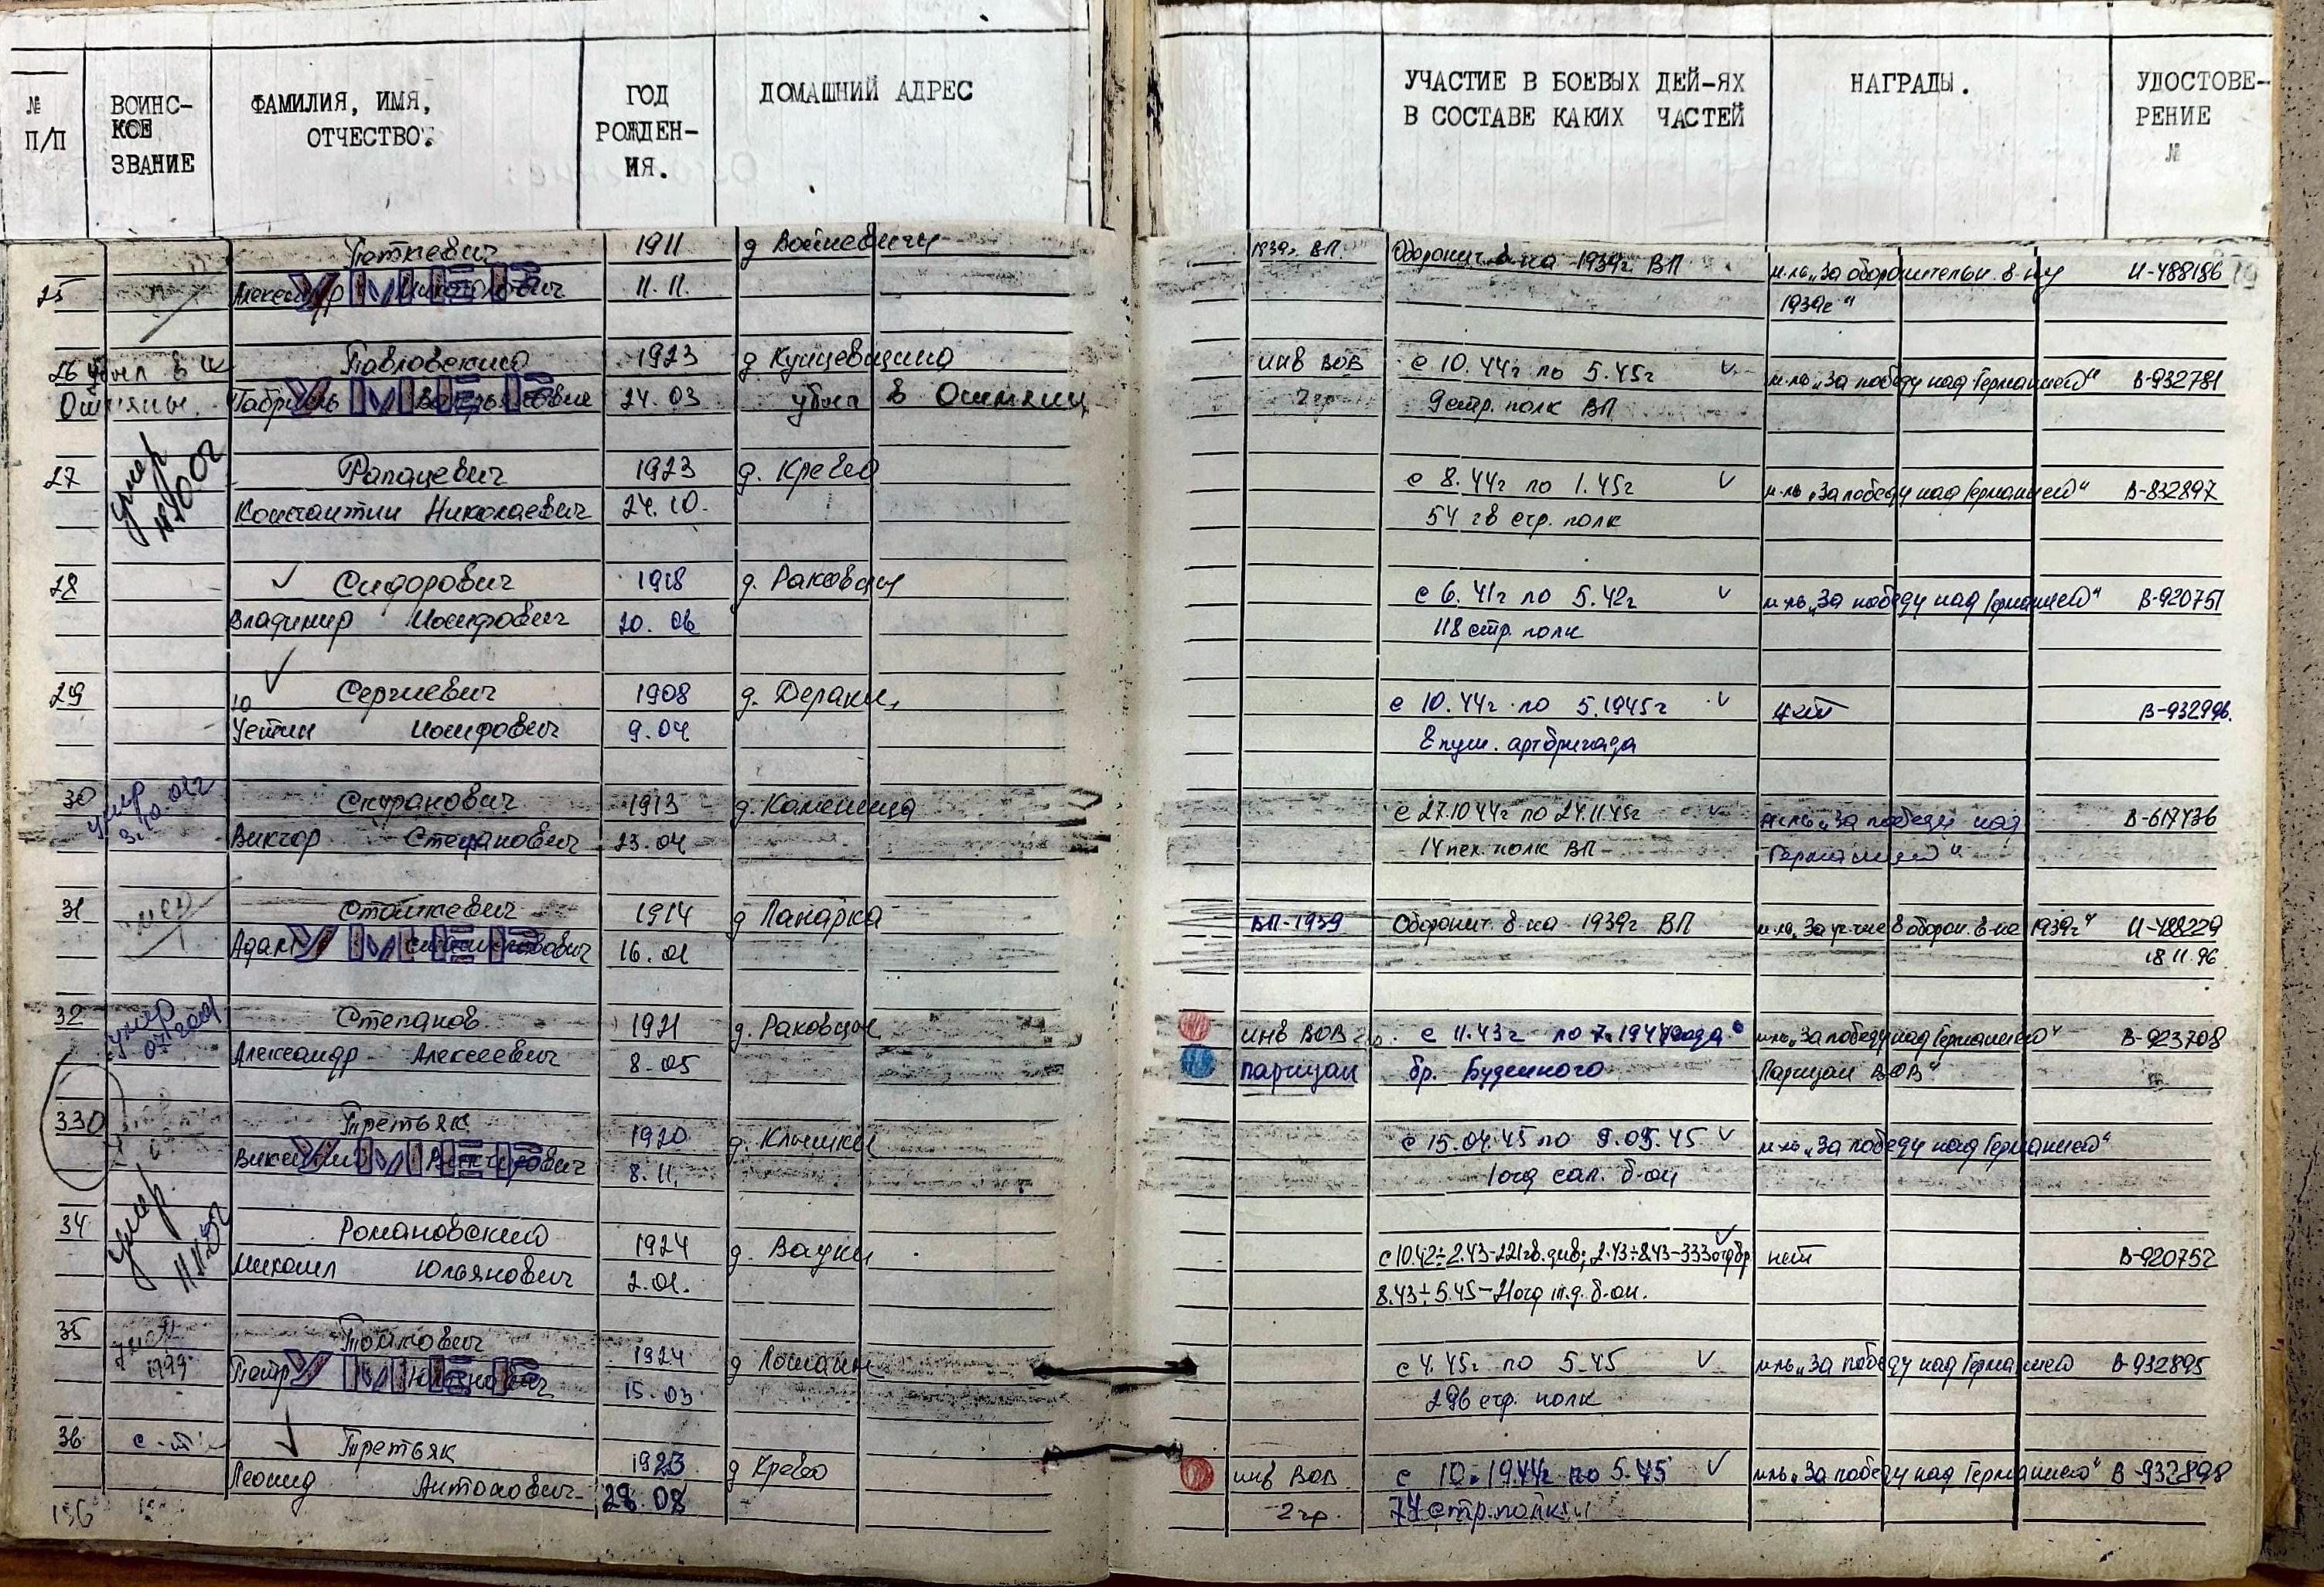 № П/П
ВОИНС-КОЕ ЗВАНИЕ
ФАМИЛИЯ, ИМЯ, ОТЧЕСТВО.
ГОД РОЖДЕН-ИЯ.
ДОМАШНИЙ АДРЕС
УЧАСТИЕ В БОЕВЫХ ДЕЙ-ЯХ В СОСТАВЕ КАКИХ ЧАСТЕЙ
НАГРАДЫ.
УДОСТОВЕ-РЕНИЕ №
1911 д Войневичи 1939г. ВП. Оборонит. в-на 1939г ВП м-ль „За оборонительн. в-ну И-488186
25 Александр УМЕР 11.11. 1939г“
26 убыл в Павловский 1923 д Кунцевщина инв ВОВ с 10.44г по 5.45г м-ль „За победу над Германией“ В-932781
Ошмяны. УМЕР 24.03 убыл в Ошмяны 2 гр. 9 стр. полк ВП
27 умер Рапацевич 1923 д. Крево с 8.44г по 1.45г м-ль „За победу над Германией“ В-832897
Константин Николаевич 24.10. 54 гв стр. полк
28 Сидорович 1918 д. Раковцы с 6.41г по 5.42г м-ль „За победу над Германией“ В-920751
Владимир Иосифович 20.06 118 стр. полк
29 Сергиевич 1908 д. Дераки, с 10.44г по 5.1945г нет В-932996.
Устин Иосифович 9.04 8 пуш. артбригада
30 умер Скуранович 1913 д. Каменица с 27.10 44г по 24.11.45г м-ль „За победу над В-617436
Виктор Степанович 23.04 14 пех. полк ВП Германией“
31 умер Стошкевич 1914 д Панарка ВП-1939 Оборонит. в-на 1939г ВП м-ль „За уч-тие в оборон. в-не 1939г“ И-488229
Адам УМЕР 16.01 18 11.96
32 умер Степанов 1921 д. Раковцы инв ВОВ с 11.43г по 7.1944года м-ль „За победу над Германией“ В-923708
Александр Алексеевич 8.05 партизан бр. Буденного Партизан ВОВ“
330 Третьяк 1920 д. Клышки с 15.04.45 по 9.05.45 м-ль „За победу над Германией“
УМЕР 8.11. 1 отд сап. б-он
34 умер Романовский 1924 д. Вауки с10.42÷2.43-221гв.див; 2.43÷8.43-333отдбр нет В-920752
Михаил Юльянович 2.01. 8.43÷5.45-21отд м.д. б-он.
35 умер Толкович 1924 д Лошаны с 4.45г по 5.45 м-ль „За победу над Германией В-932895
1999 Петр УМЕР 15.03 296 стр. полк
36 с-т Третьяк 1923 д Крево инв ВОВ с 10.1944г по 5.45 м-ль „За победу над Германией“ В-932898
Леонид Антонович 28.08 2 гр. 74 стр. полк
156